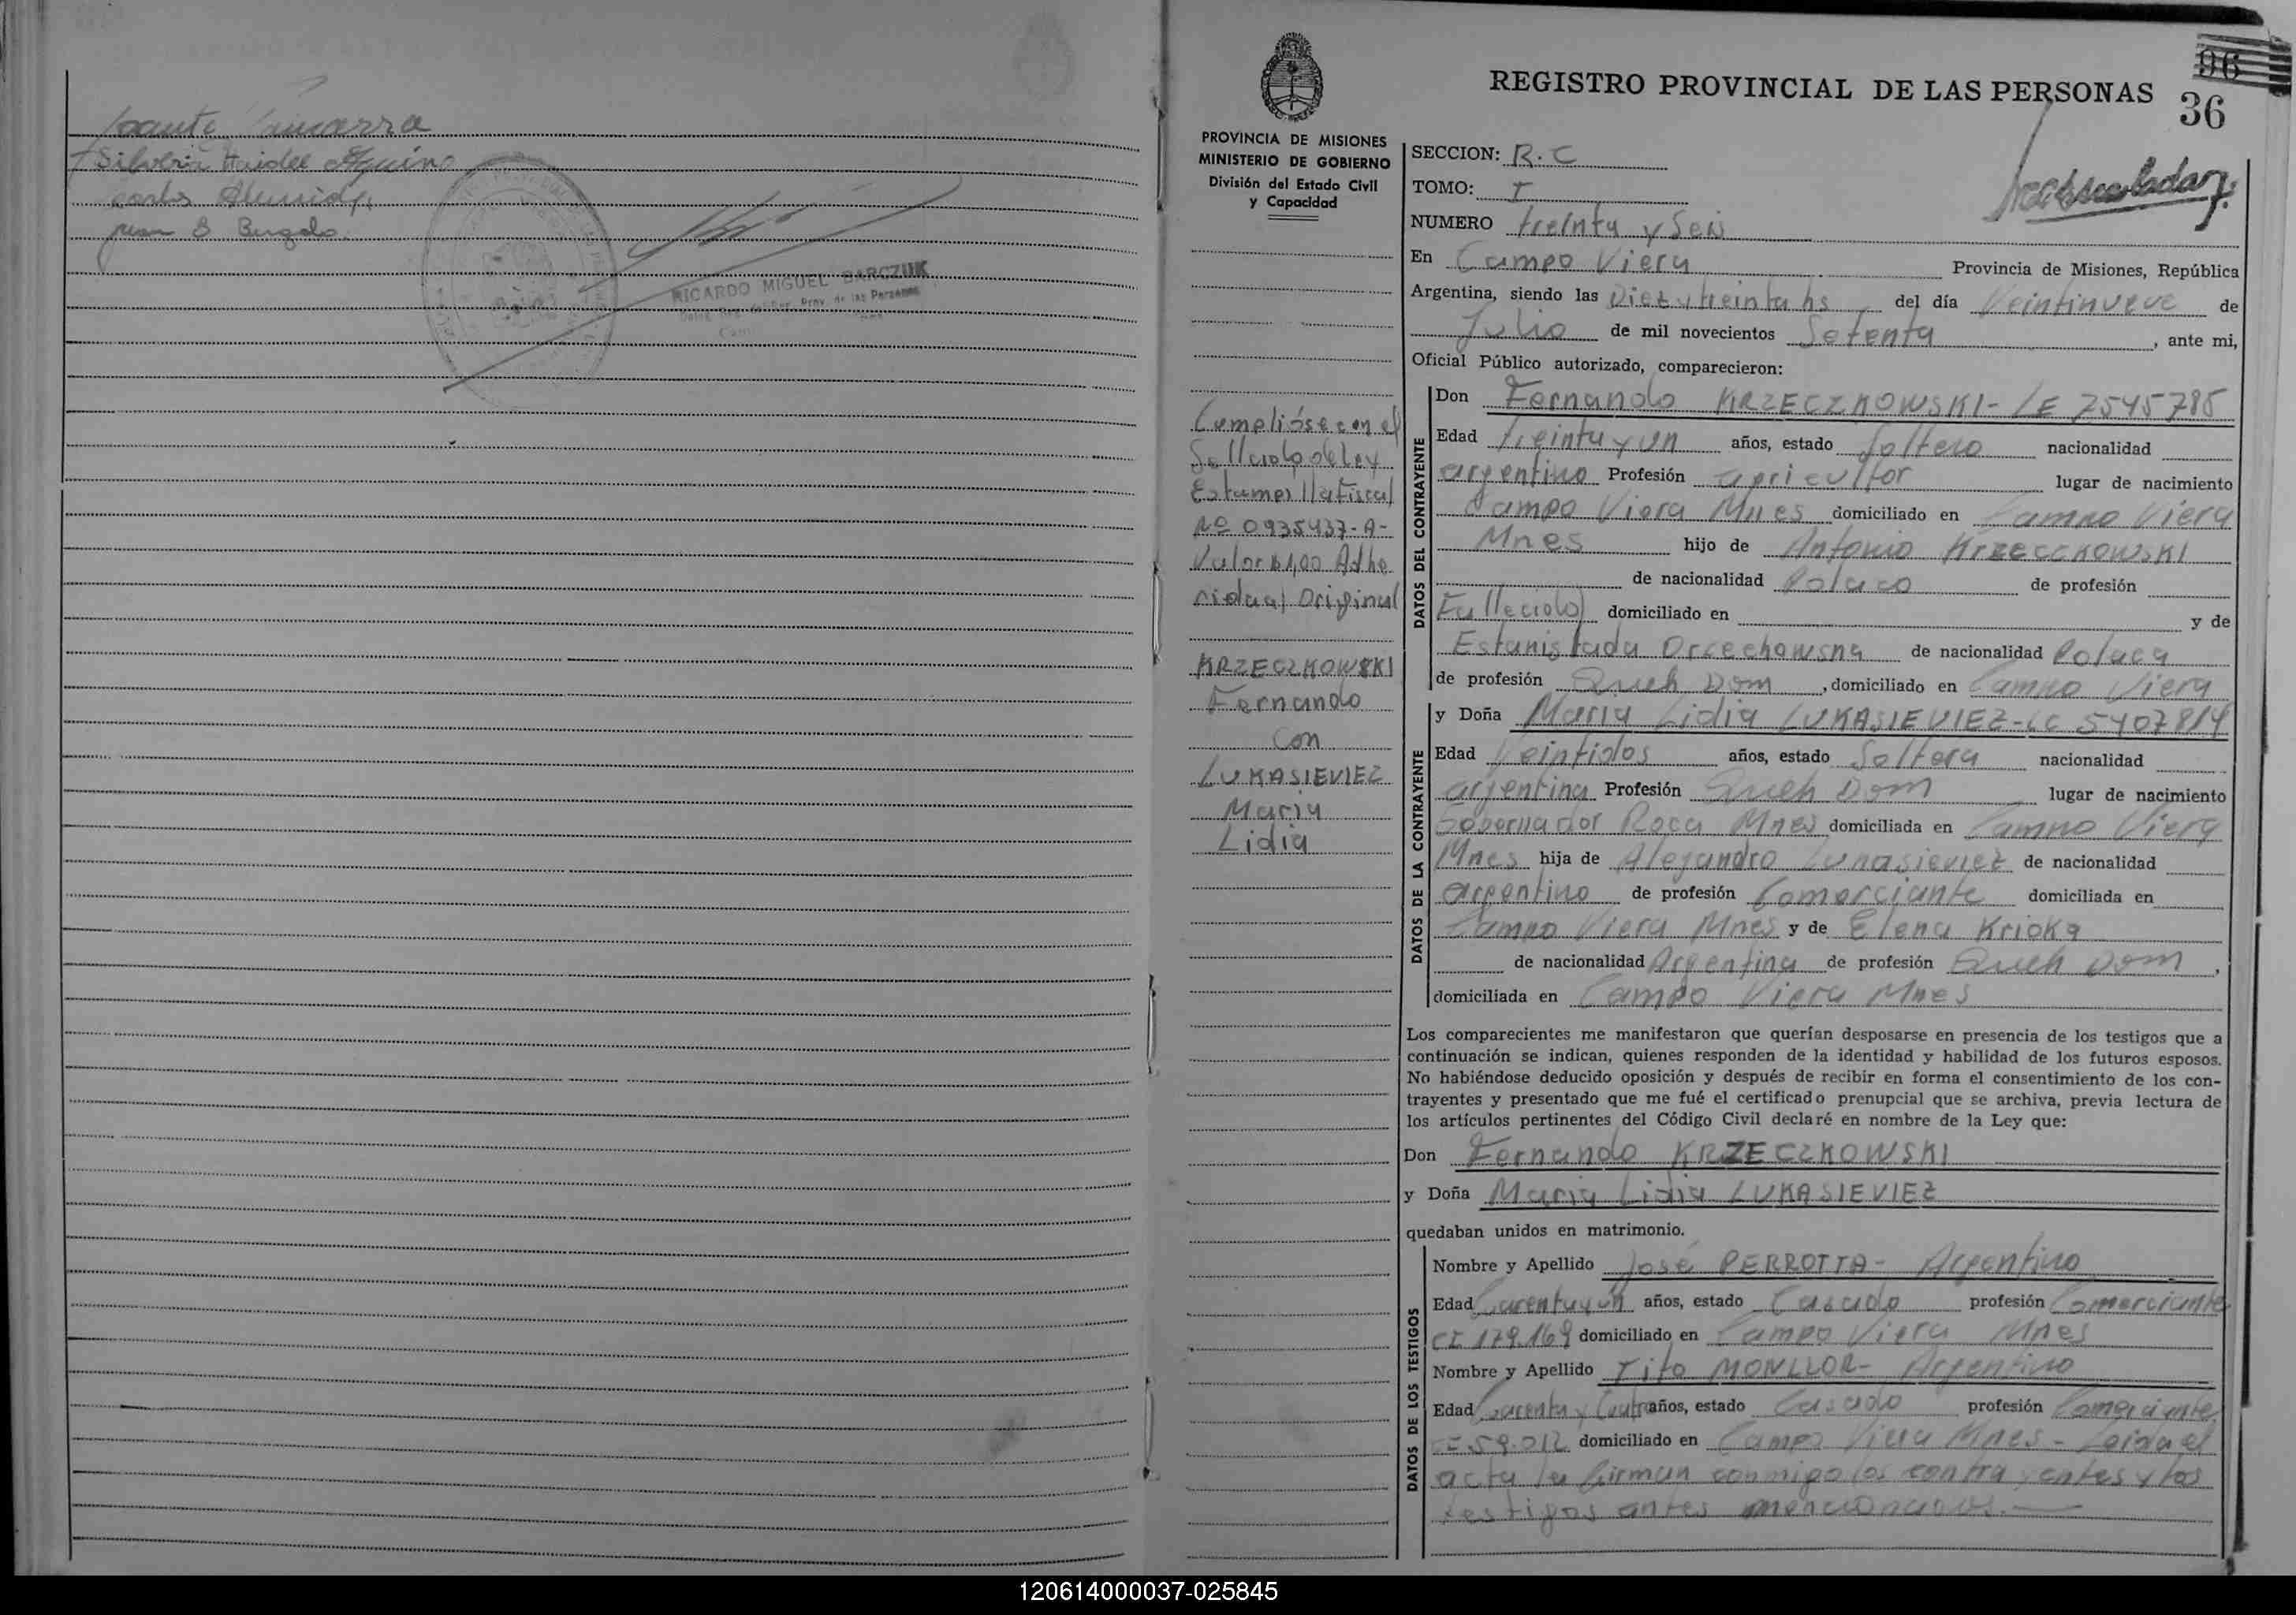 Silveria Haidee Aquino
Carlos
Juan S
RICARDO MIGUEL BARCZUK
Prov. de las Personas
96
36
REGISTRO PROVINCIAL DE LAS PERSONAS
PROVINCIA DE MISIONES
MINISTERIO DE GOBIERNO
División del Estado Civil
y Capacidad
Cumplióse con el
Sellado de Ley
Estampilla Fiscal
Nº 0935437-A-
Valor $1,00 Adhe
rida al Original
KRZECZKOWSKI
Fernando
Con
LUKASIEVIEZ
Maria
Lidia
SECCION: R.C
TOMO: I
NUMERO treinta y Seis
En Campo Viera Provincia de Misiones, República
Argentina, siendo las Diez y treinta hs del día Veintinueve de
Julio de mil novecientos Setenta, ante mi,
Oficial Público autorizado, comparecieron:
DATOS DEL CONTRAYENTE
Don Fernando KRZECZKOWSKI- LE 7545785
Edad treinta y un años, estado Soltero nacionalidad
argentino Profesión agricultor lugar de nacimiento
Campo Viera Mnes domiciliado en Campo Viera
Mnes hijo de Antonio KRZECZKOWSKI
de nacionalidad Polaco de profesión
Fallecido domiciliado en y de
Estanislada de nacionalidad Polaca
de profesión Queh Dom, domiciliado en Campo Viera
DATOS DE LA CONTRAYENTE
y Doña Maria Lidia LUKASIEVIEZ-LC 5407814
Edad Veintidos años, estado Soltera nacionalidad
argentina Profesión Queh Dom lugar de nacimiento
Gobernador Roca Mnes domiciliada en Campo Viera
Mnes hija de Alejandro Lukasieviez de nacionalidad
argentino de profesión Comerciante domiciliada en
Campo Viera Mnes y de Elena Krioka
de nacionalidad Argentina de profesión Queh Dom,
domiciliada en Campo Viera Mnes
Los comparecientes me manifestaron que querían desposarse en presencia de los testigos que a
continuación se indican, quienes responden de la identidad y habilidad de los futuros esposos.
No habiéndose deducido oposición y después de recibir en forma el consentimiento de los con-
trayentes y presentado que me fué el certificado prenupcial que se archiva, previa lectura de
los artículos pertinentes del Código Civil declaré en nombre de la Ley que:
Don Fernando KRZECZKOWSKI
y Doña Maria Lidia LUKASIEVIEZ
quedaban unidos en matrimonio.
DATOS DE LOS TESTIGOS
Nombre y Apellido José PERROTTA- Argentino
Edad Cuarenta y un años, estado Casado profesión Comerciante
CI 179.169 domiciliado en Campo Viera Mnes
Nombre y Apellido Tito MONLLOR- Argentino
Edad Cuarenta y Cuatro años, estado Casado profesión Comerciante
CI 59.012 domiciliado en Campo Viera Mnes- Leida el
acta la firman conmigo los contrayentes y los
testigos antes mencionados.
120614000037-025845